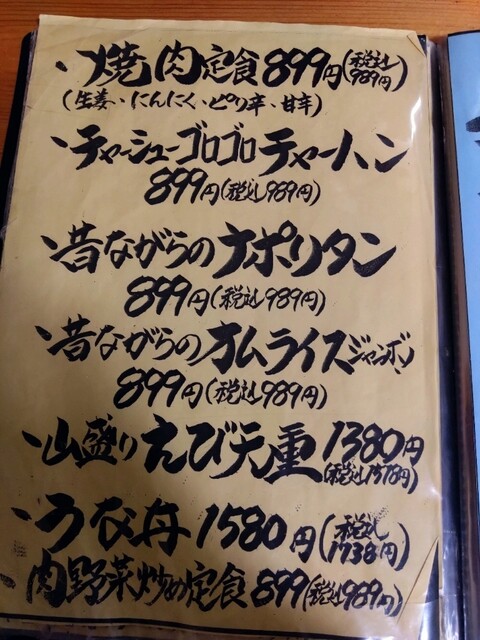 ・焼肉定食 899円(税込989円)
(生姜、にんにく、ピリ辛、甘辛)
・チャーシューゴロゴロチャーハン
899円(税込989円)
・昔ながらのナポリタン
899円(税込989円)
・昔ながらのオムライスジャンボン
899円(税込989円)
・山盛りえび天重 1380円
(税込1518円)
・うな丼 1580円(税込1738円)
肉野菜炒め定食 899(税込989円)